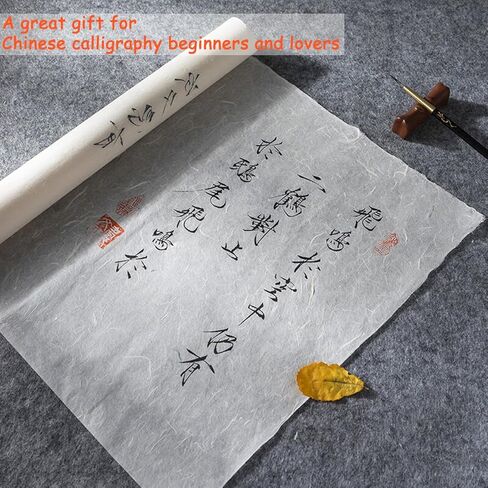 A great gift for
Chinese calligraphy beginners and lovers
飛鳴於空中仍有
二鶴對上
於鴟尾飛鳴於